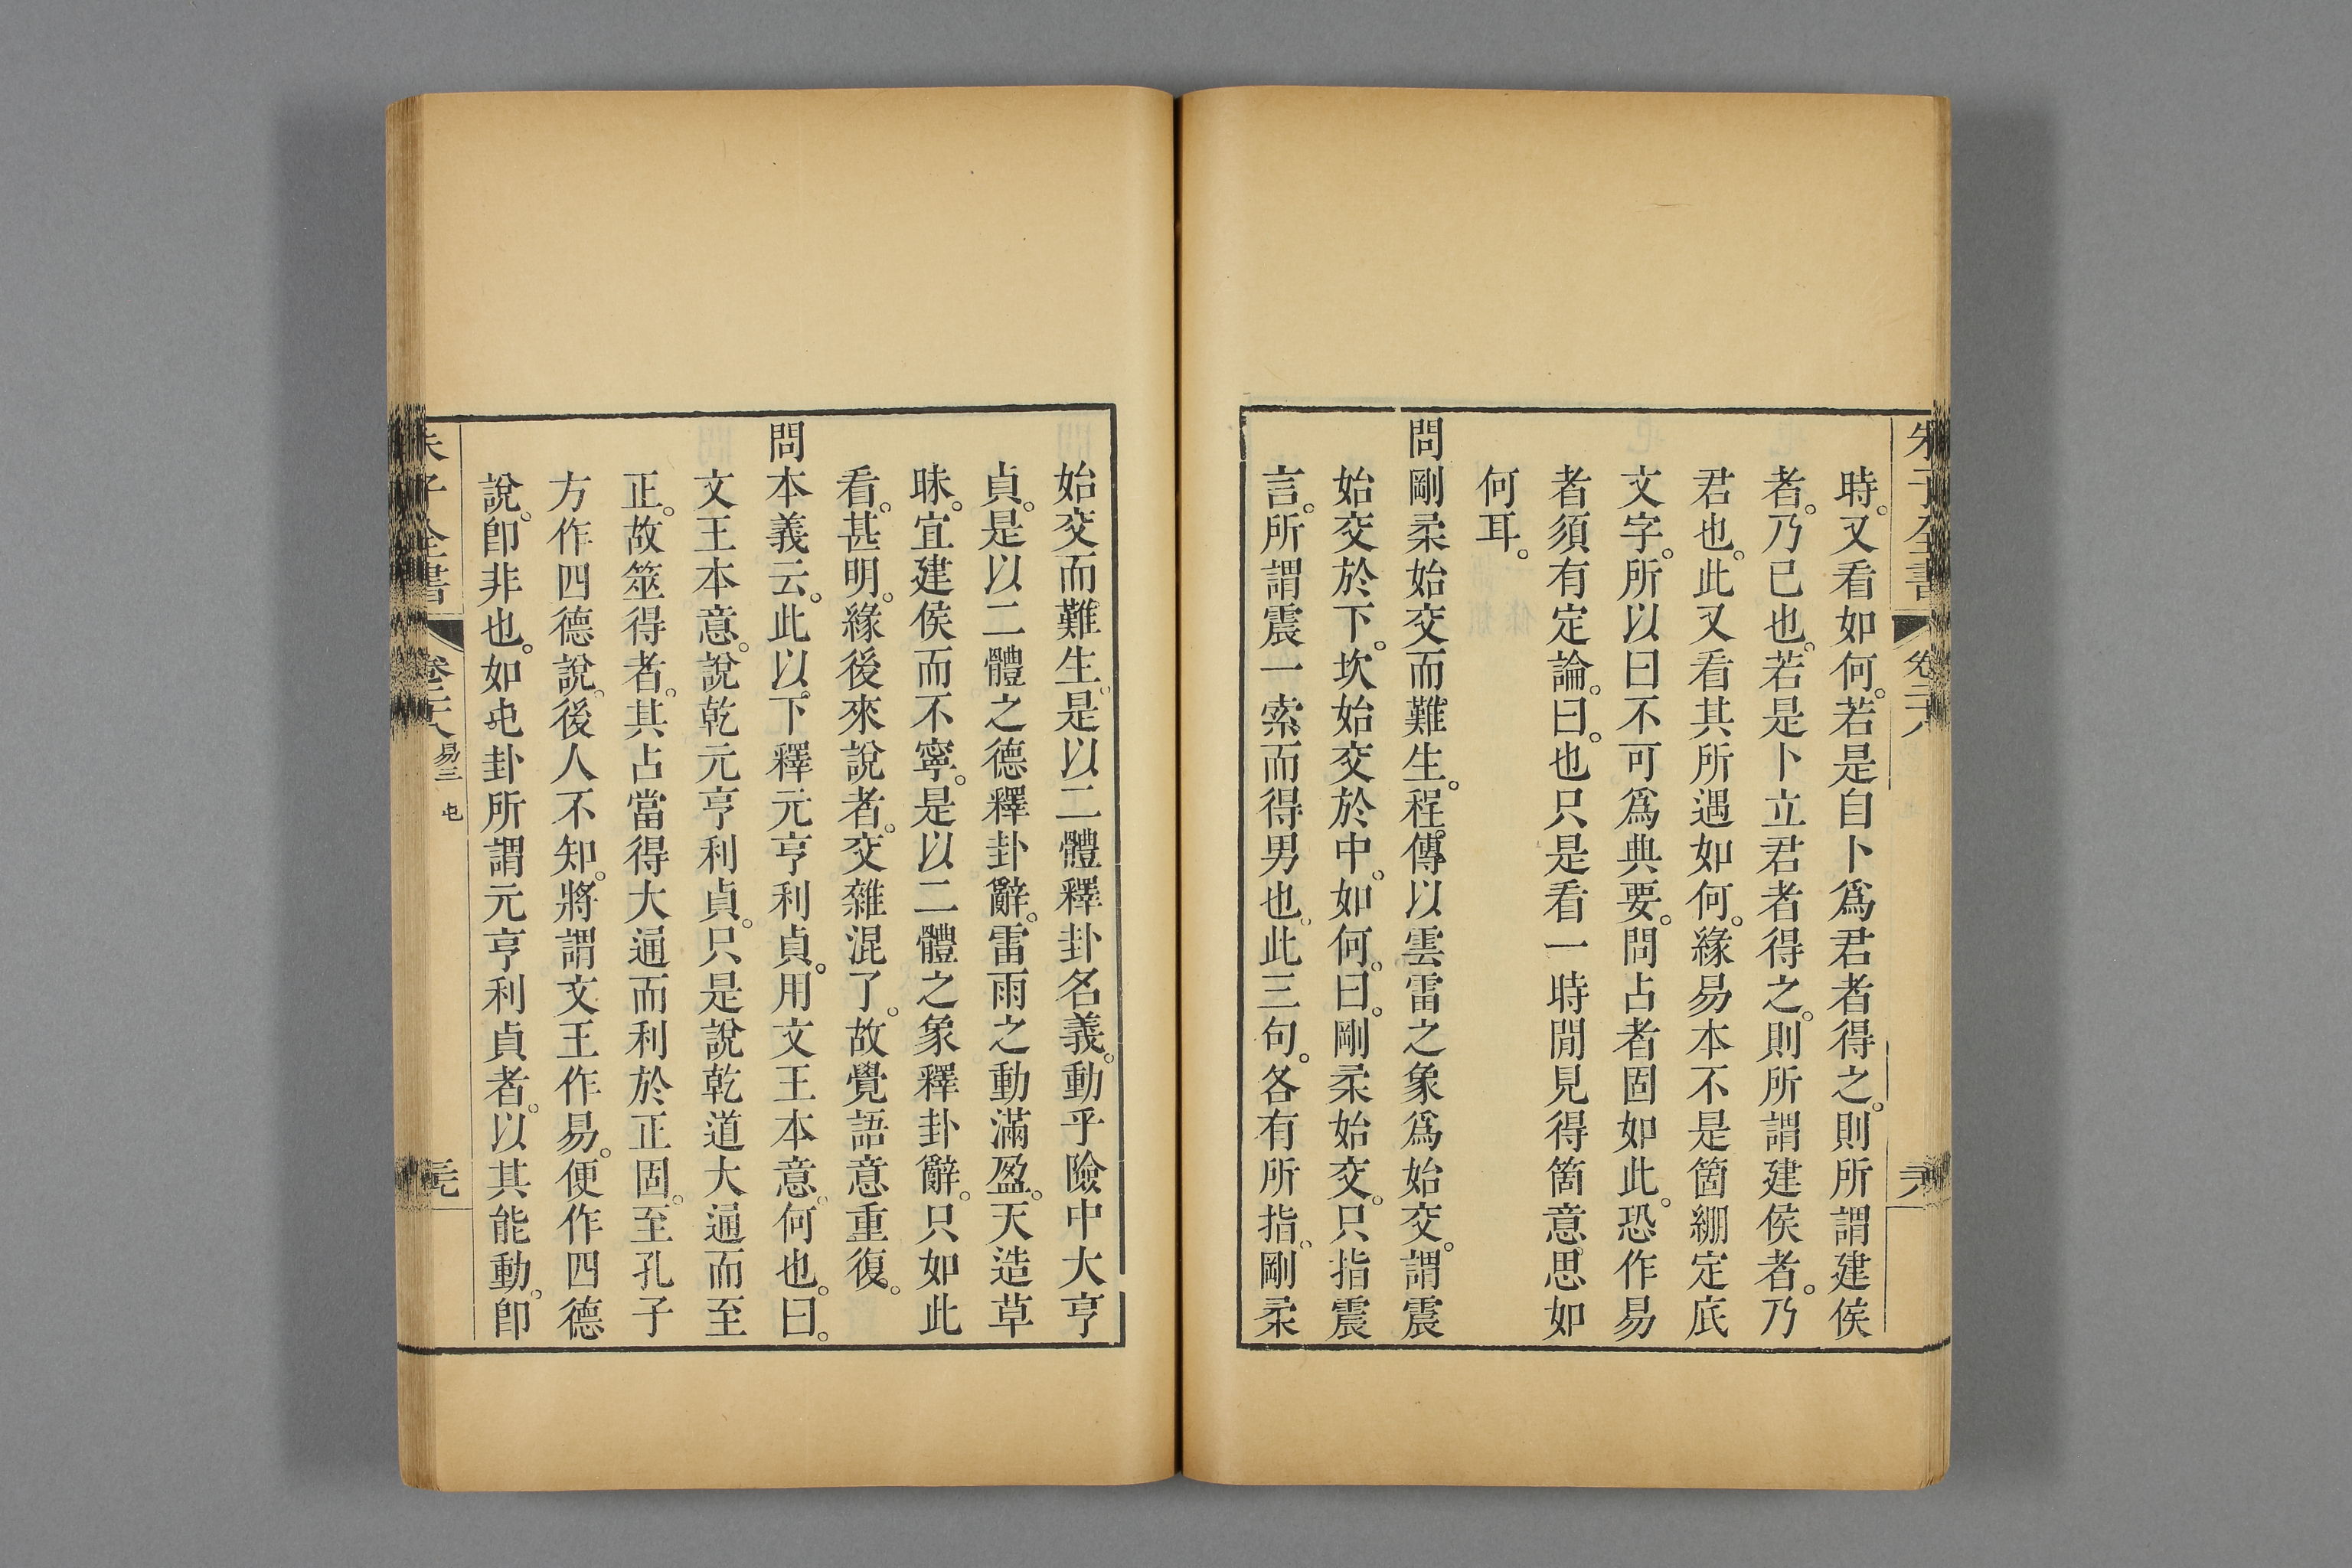 朱子全書 卷二十八 三十八
時。又看如何。若是自卜爲君者得之。則所謂建侯
者。乃己也。若是卜立君者得之。則所謂建侯者。乃
君也。此又看其所遇如何。緣易本不是箇繃定底
文字。所以曰不可爲典要。問占者固如此。恐作易
者須有定論。曰。也只是看一時閒見得箇意思如
何耳。
問剛柔始交而難生。程傳以雲雷之象爲始交。謂震
始交於下。坎始交於中。如何。曰。剛柔始交。只指震
言。所謂震一索而得男也。此三句。各有所指。剛柔
始交而難生。是以二體釋卦名義。動乎險中大亨
貞。是以二體之德釋卦辭。雷雨之動滿盈。天造草
昧。宜建侯而不寧。是以二體之象釋卦辭。只如此
看。甚明。緣後來說者。交雜混了。故覺語意重復。
問本義云。此以下釋元亨利貞。用文王本意。何也。曰。
文王本意。說乾元亨利貞。只是說乾道大通而至
正。故筮得者。其占當得大通而利於正固。至孔子
方作四德說。後人不知。將謂文王作易。便作四德
說。卽非也。如屯卦所謂元亨利貞者。以其能動。卽
朱子全書 卷二十八 易三 屯 三十九